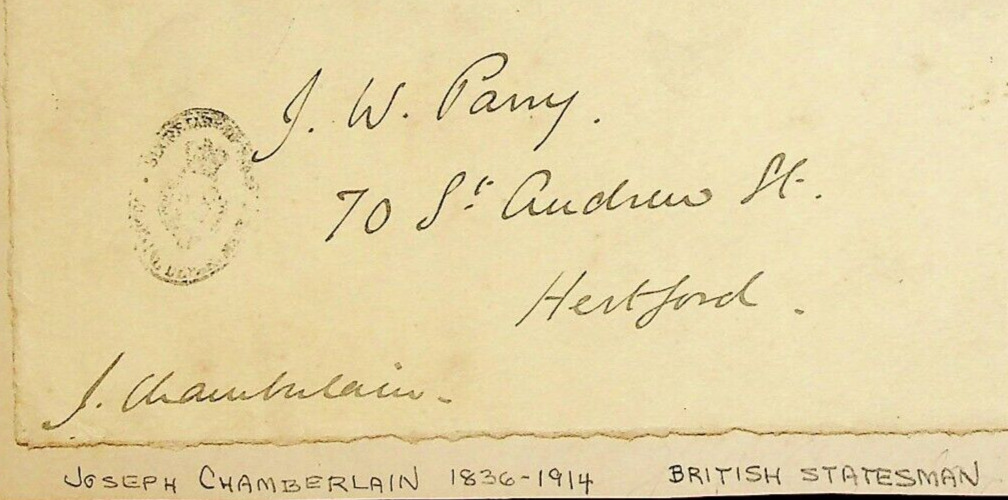 J. W. Parry.
70 St. Andrew St.
Hertford.
J. Chamberlain.
JOSEPH CHAMBERLAIN 1836-1914 BRITISH STATESMAN